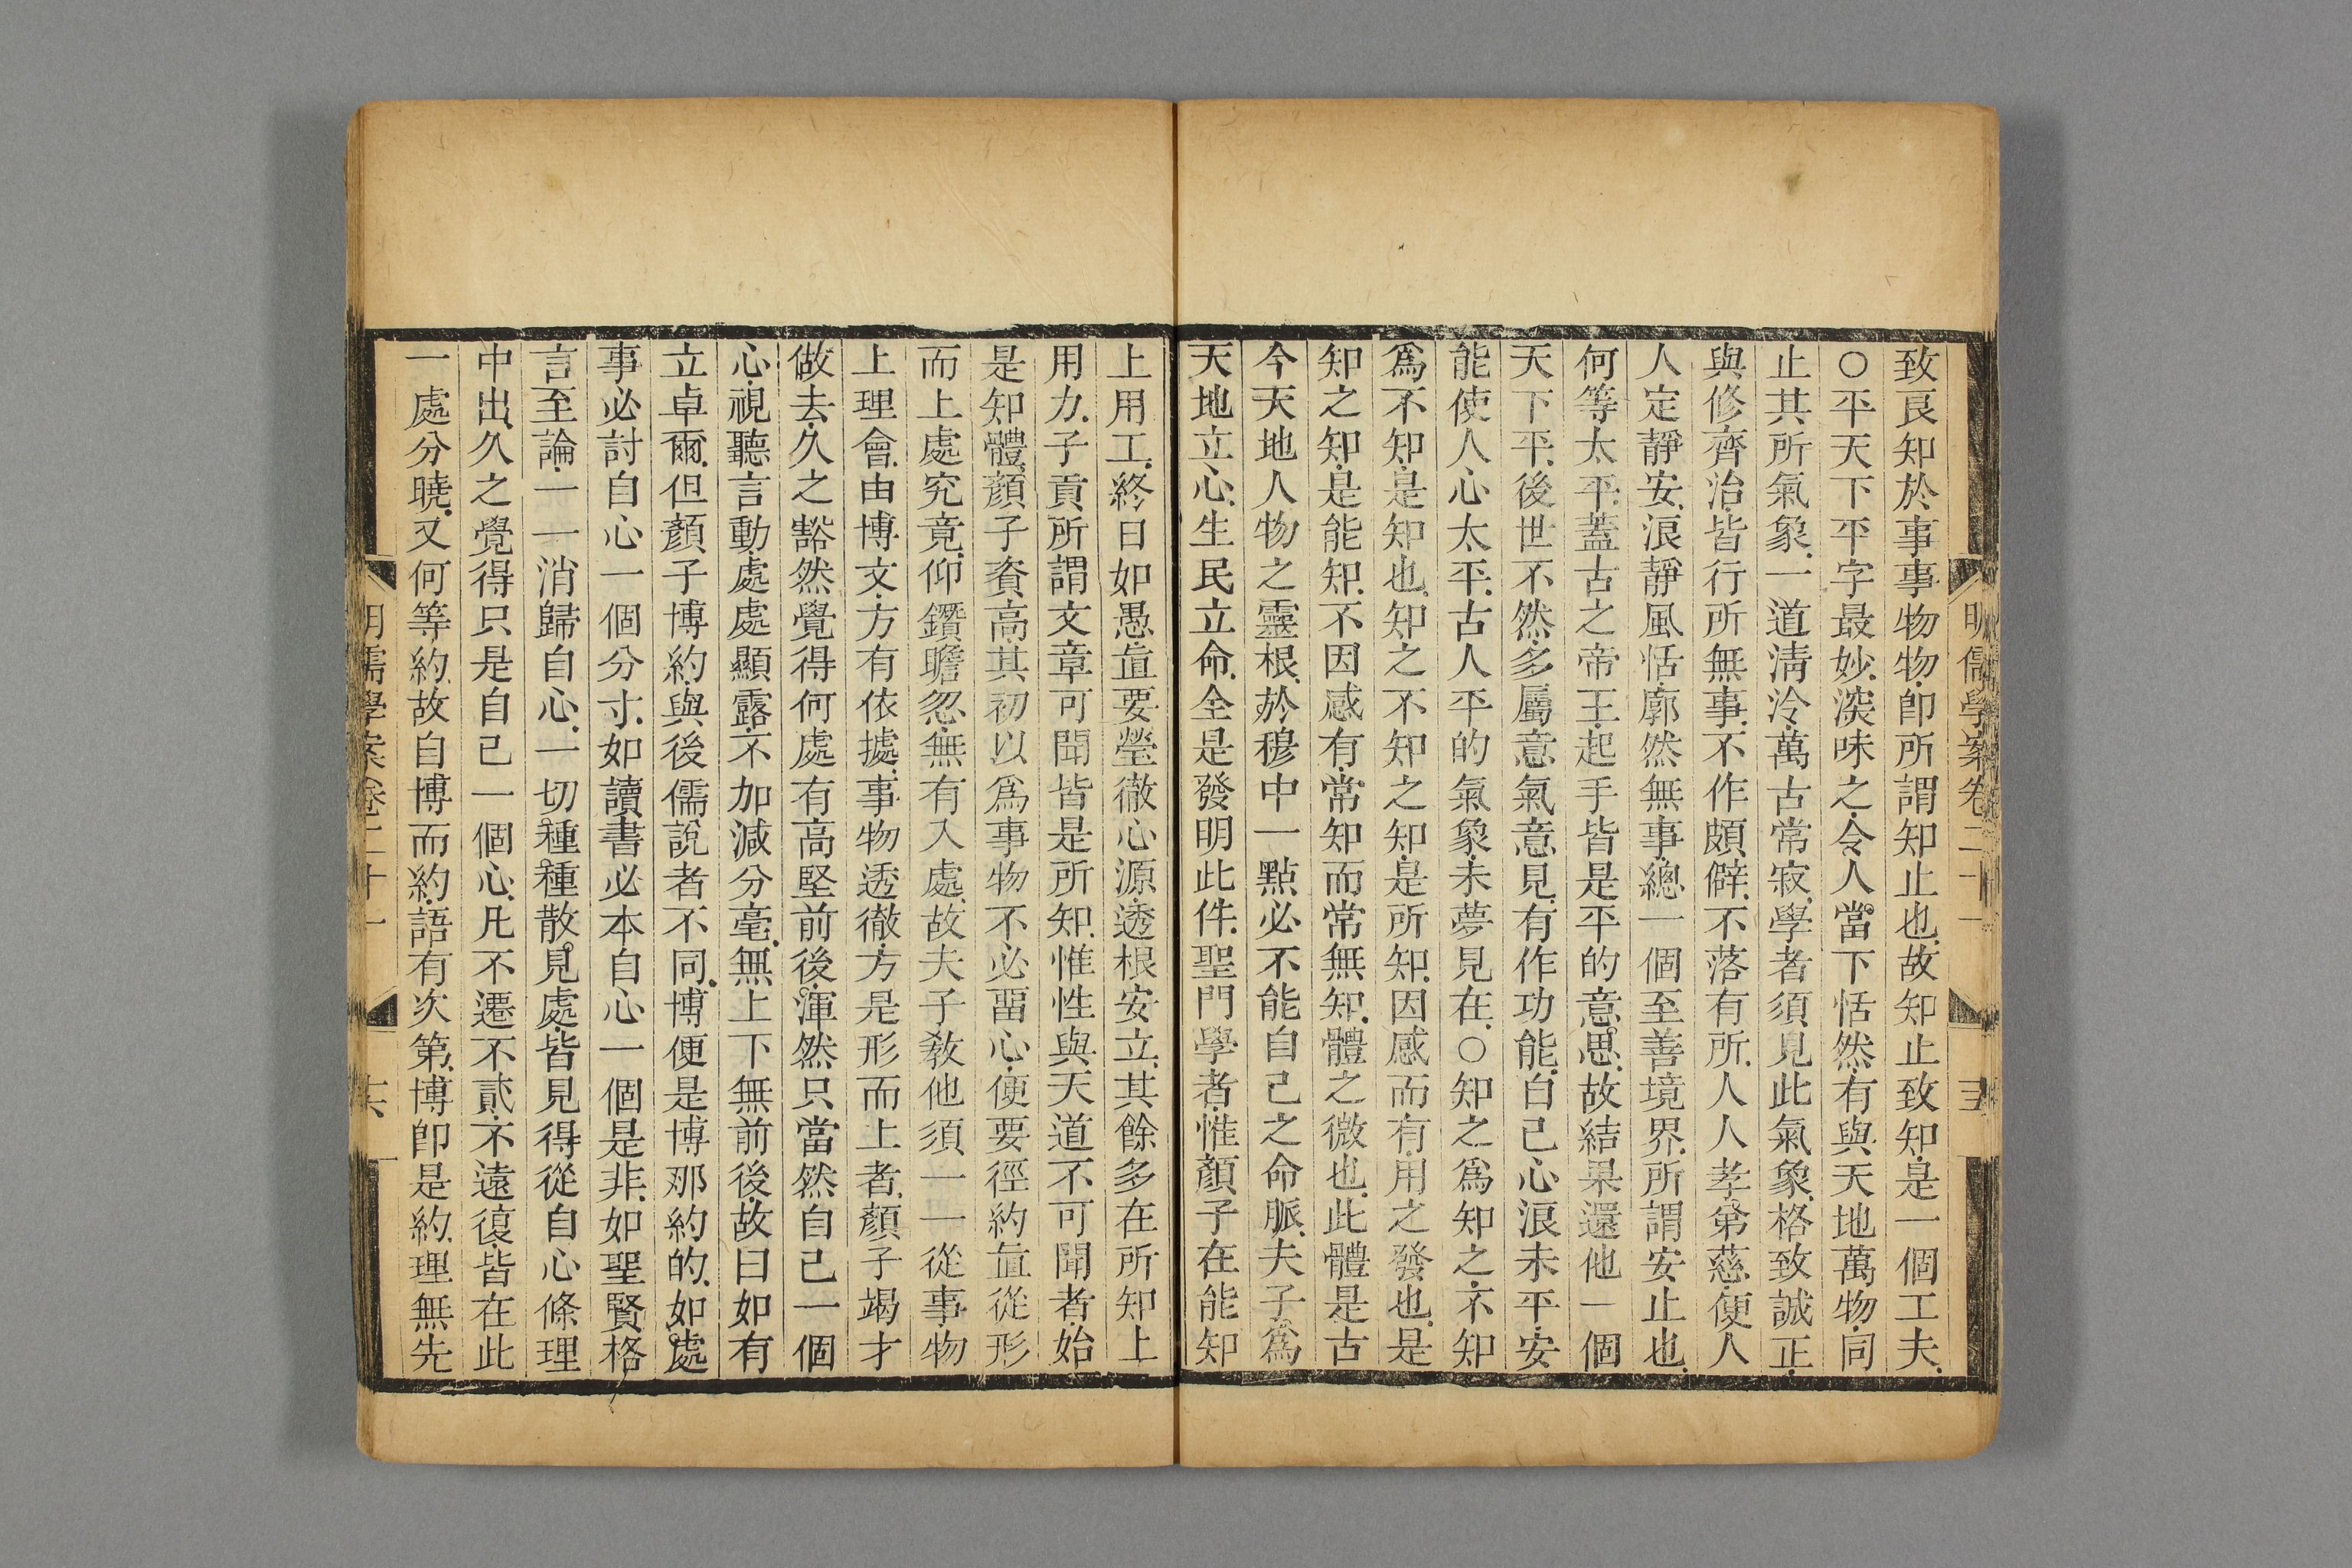 致良知於事事物物卽所謂知止也故知止致知是一個工夫
○平天下平字最妙深味之令人當下恬然有與天地萬物同
止其所氣象一道淸泠萬古常寂學者須見此氣象格致誠正
與修齊治皆行所無事不作頗僻不落有所人人孝弟慈便人
人定靜安浪靜風恬廓然無事總一個至善境界所謂安止也
何等太平蓋古之帝王起手皆是平的意思故結果還他一個
天下平後世不然多屬意氣意見有作功能自己心浪未平安
能使人心太平古人平的氣象未夢見在○知之爲知之不知
爲不知是知也知之不知之知是所知因感而有用之發也是
知之知是能知不因感有常知而常無知體之微也此體是古
今天地人物之靈根於穆中一點必不能自己之命脈夫子爲
天地立心生民立命全是發明此件聖門學者惟顏子在能知
上用工終日如愚直要瑩徹心源透根安立其餘多在所知上
用力子貢所謂文章可聞皆是所知惟性與天道不可聞者始
是知體顏子資高其初以爲事物不必畱心便要徑約直從形
而上處究竟仰鑽瞻忽無有入處故夫子敎他須一一從事物
上理會由博文方有依據事物透徹方是形而上者顏子竭才
做去久之豁然覺得何處有高堅前後渾然只當然自己一個
心視聽言動處處顯露不加減分毫無上下無前後故曰如有
立卓爾但顏子博約與後儒說者不同博便是博那約的如處
事必討自心一個分寸如讀書必本自心一個是非如聖賢格
言至論一一消歸自心一切種種散見處皆見得從自心條理
中出久之覺得只是自己一個心凡不遷不貳不遠復皆在此
一處分曉又何等約故自博而約語有次第博卽是約理無先
明儒學案卷二十一